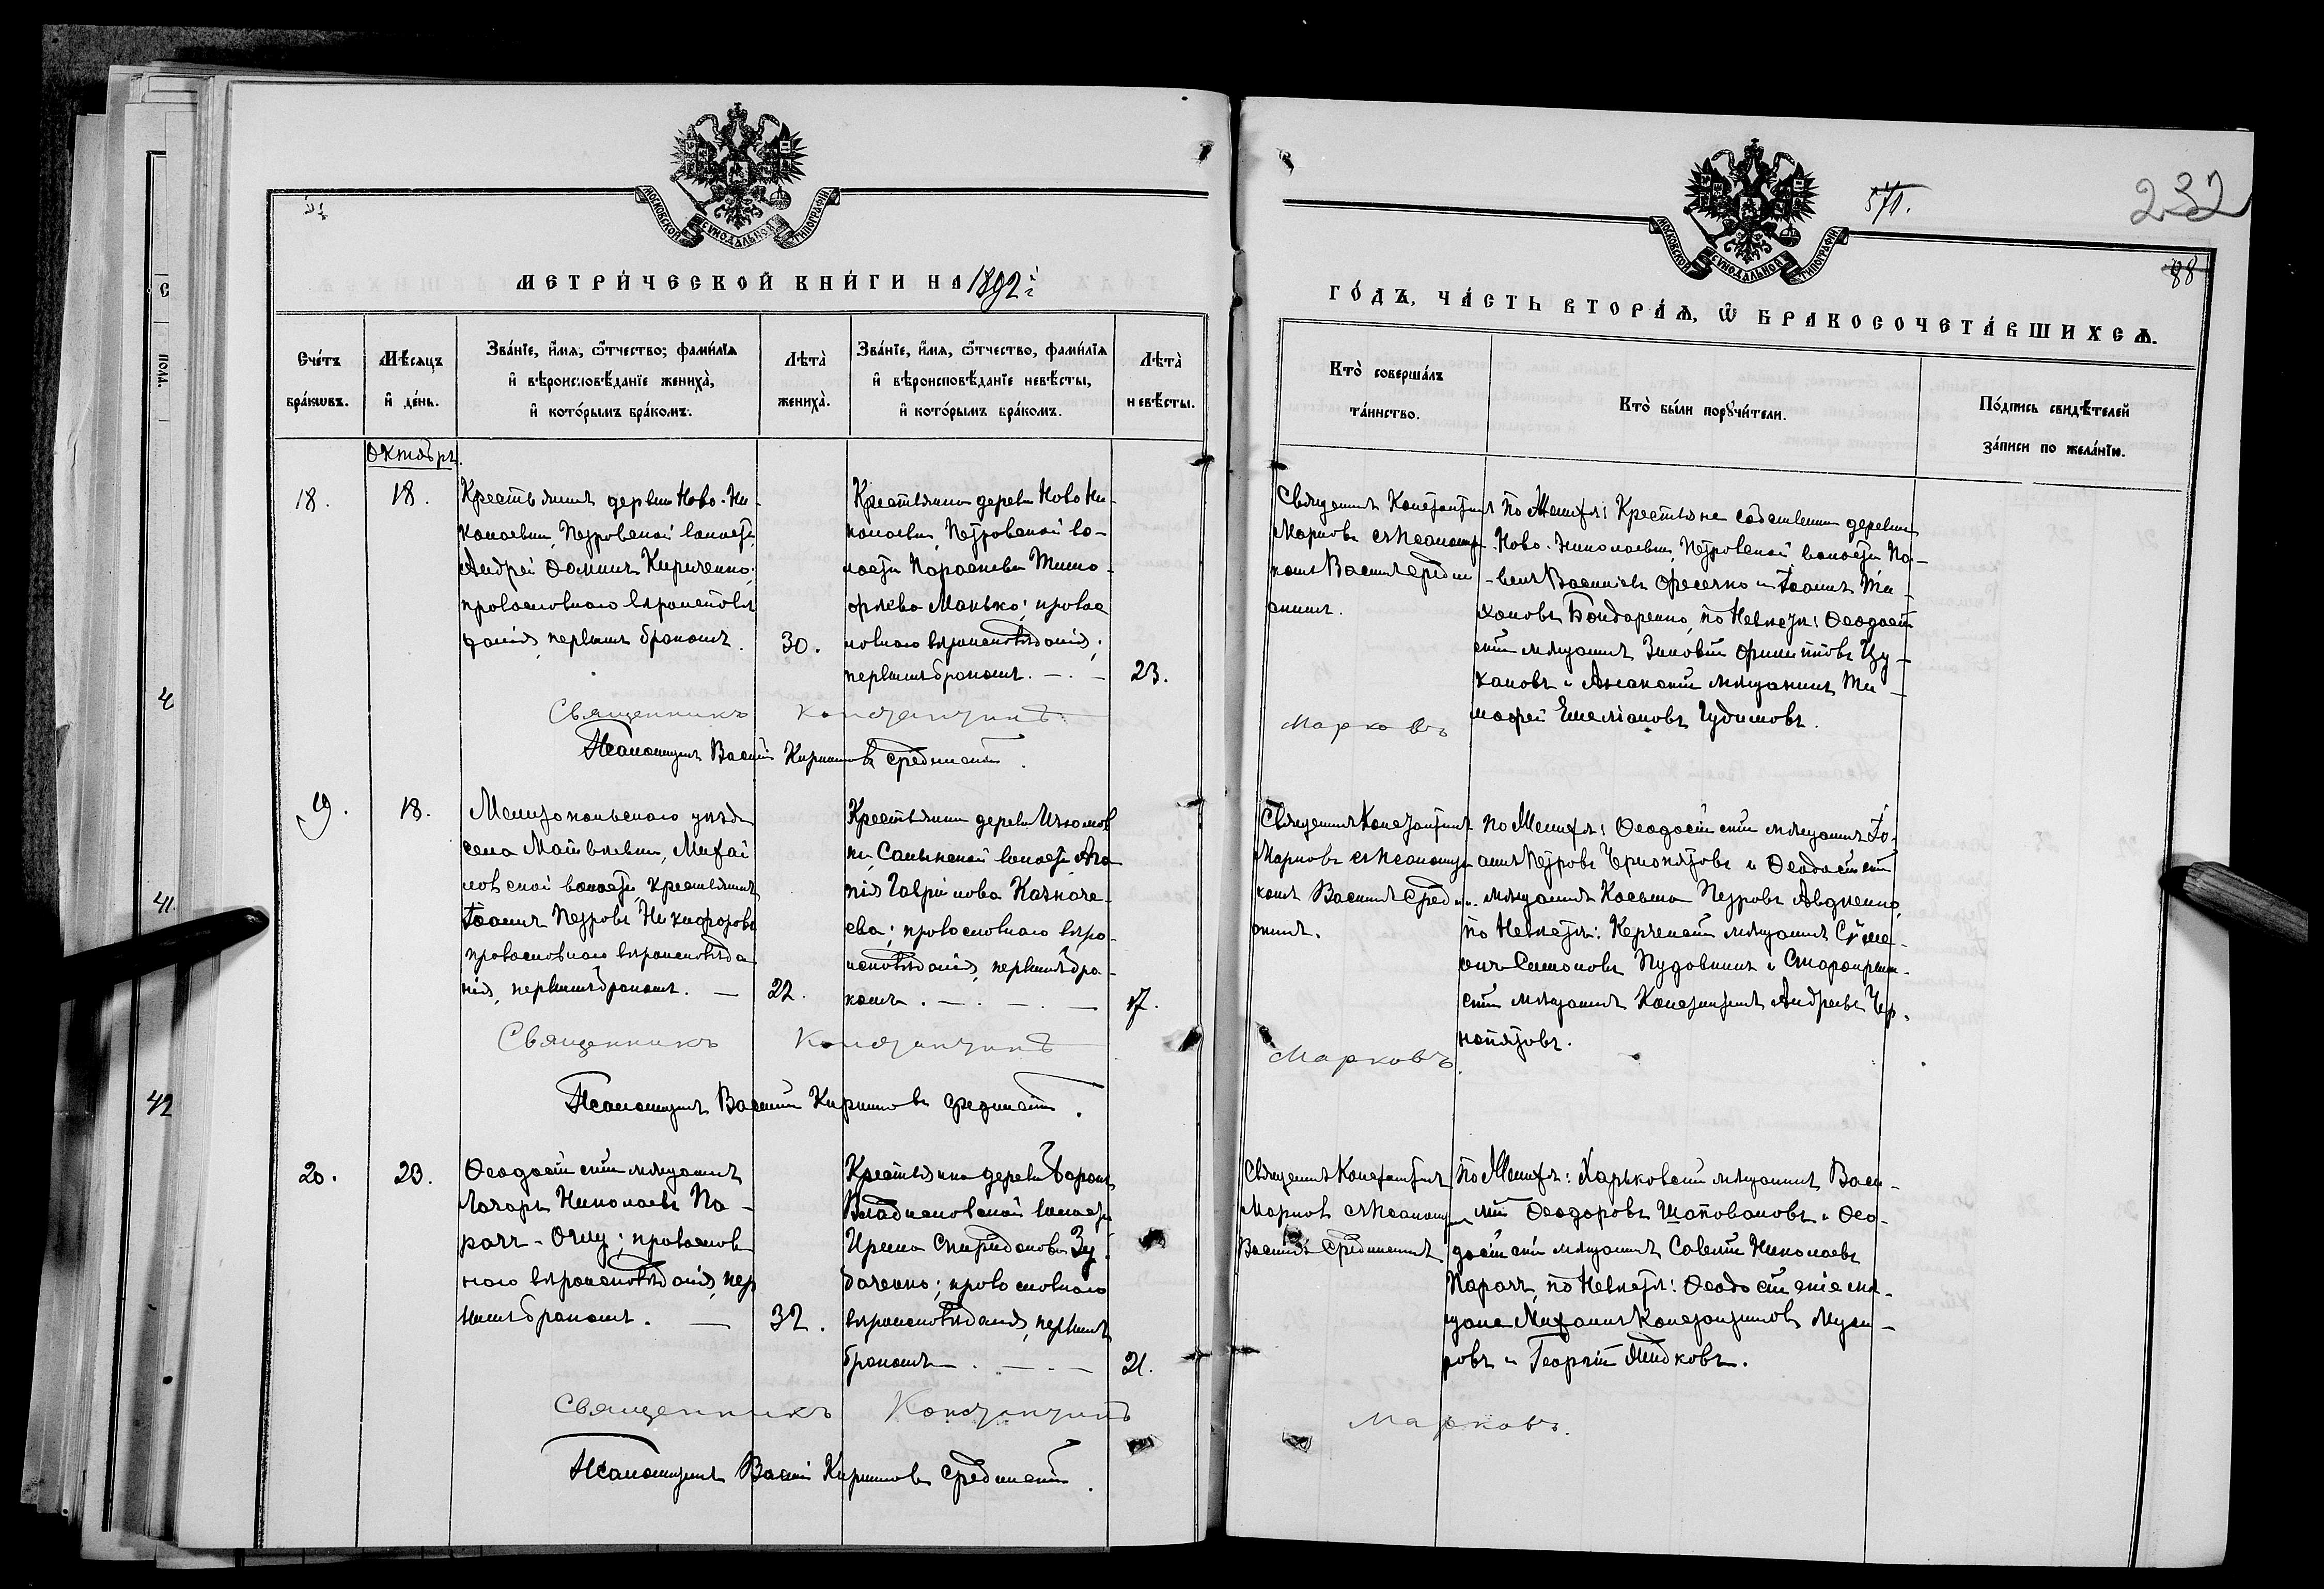 МОСКОВСКОЙ СѴНОДАЛЬНОЙ ТИПОГРАФІИ
МЕТРИ́ЧЕСКОЙ КНИ́ГИ НА 1892 й
Сче́тъ бра́кωвъ.
Мѣ́сяцъ и҆ де́нь.
Зва́нїе, и҆́мѧ, ѻ҆́тчество; фами́лїѧ и҆ вѣроисповѣ́данїе жениха̀, и҆ кото́рымъ бра́комъ.
Лѣта̀ жениха̀.
Зва́нїе, и҆́мѧ, ѻ҆́тчество, фами́лїѧ и҆ вѣроисповѣ́данїе невѣ́сты, и҆ кото́рымъ бра́комъ.
Лѣта̀ невѣ́сты.
Октябрь.
18.
18.
Крестьянинъ деревни Ново-Ни-
колаевки, Петровской волости
Андрей Фоминъ Кириченко;
православнаго вѣроисповѣ
данія, первымъ бракомъ.
30.
Крестьянка деревни Ново Ни-
колаевки, Петровской во-
лости Параскева Тимо-
фѣева Манько; правос
лавнаго вѣроисповѣданія;
первымъ бракомъ.
23.
Священникъ Константинъ
Псаломщикъ Василій Кирилловъ Срединскій.
19.
18.
Мелитопольскаго уѣзда
села Матвѣевки, Михай
ловской волости, крестьянинъ
Іоаннъ Петровъ Никифоровъ
православнаго вѣроисповѣда
нія, первымъ бракомъ.
22.
Крестьянка деревни
Салынской волости, Ага
пія Гаврилова Казначе-
ева; православнаго вѣро-
исповѣданія, первымъ бра-
комъ.
17.
Священникъ Константинъ
Псаломщикъ Василій Кирилловъ Срединскій.
20.
23.
Ѳеодосійскій мѣщанинъ
Лазарь Николаевъ Па-
рачъ-Оглу; православ
наго вѣроисповѣданія, пер
вымъ бракомъ.
32.
Крестьянка деревни
Владиславовской волости
Ирина Спиридонова Зу-
даченко; православнаго
вѣроисповѣданія, первымъ
бракомъ
21.
Священникъ Константинъ
Псаломщикъ Василій Кирилловъ Срединскій.
571.
232
88
МОСКОВСКОЙ СѴНОДАЛЬНОЙ ТИПОГРАФІИ
ГО́ДЪ, ЧА́СТЬ ВТОРА́Ѧ, Ѽ БРАКОСОЧЕТА́ВШИХСѦ.
Кто̀ соверша́лъ та́инство.
Кто̀ бы́ли поручи́тели.
По́дпись свидѣ́телей за́писи по жела́нїю.
Священникъ Константинъ
Марковъ съ Псаломщи
комъ Василіемъ Средин
скимъ.
По Женихѣ: Крестьяне собственники деревни
Ново-Николаевки, Петровской волости Па-
велъ Василіевъ Фесечко и Іоаннъ Ти-
хановъ Бондаренко, по Невѣстѣ: Ѳеодосій
скій мѣщанинъ Зиновій Филипповъ Цу-
кановъ и Азовскій мѣщанинъ Ти-
мофей Емеліановъ Чудимовъ.
Марковъ
Священникъ Константинъ
Марковъ съ Псаломщи
комъ Василіемъ Средин-
скимъ.
По Женихѣ: Ѳеодосійскій мѣщанинъ Іо-
аннъ Петровъ Чернопятовъ и Ѳеодосійскій
мѣщанинъ Косьма Петровъ Авдѣенко,
по Невѣстѣ: Керченскій мѣщанинъ Сѵме-
онъ Симоновъ Пудовкинъ и Старокрым-
скій мѣщанинъ Константинъ Андреевъ Чер-
нопятовъ.
Марковъ
Священникъ Константинъ
Марковъ съ Псаломщ
Василіемъ Срединскимъ
По Женихѣ: Харьковскій мѣщанинъ Васи-
лій Ѳеодоровъ Шаповаловъ и Ѳео-
досійскій мѣщанинъ Савелій Николаевъ
Парачъ, по Невѣстѣ: Ѳеодосійскіе мѣ-
щане Михаилъ Константиновъ
и Георгій Жидковъ.
Марковъ.
4
41.
42